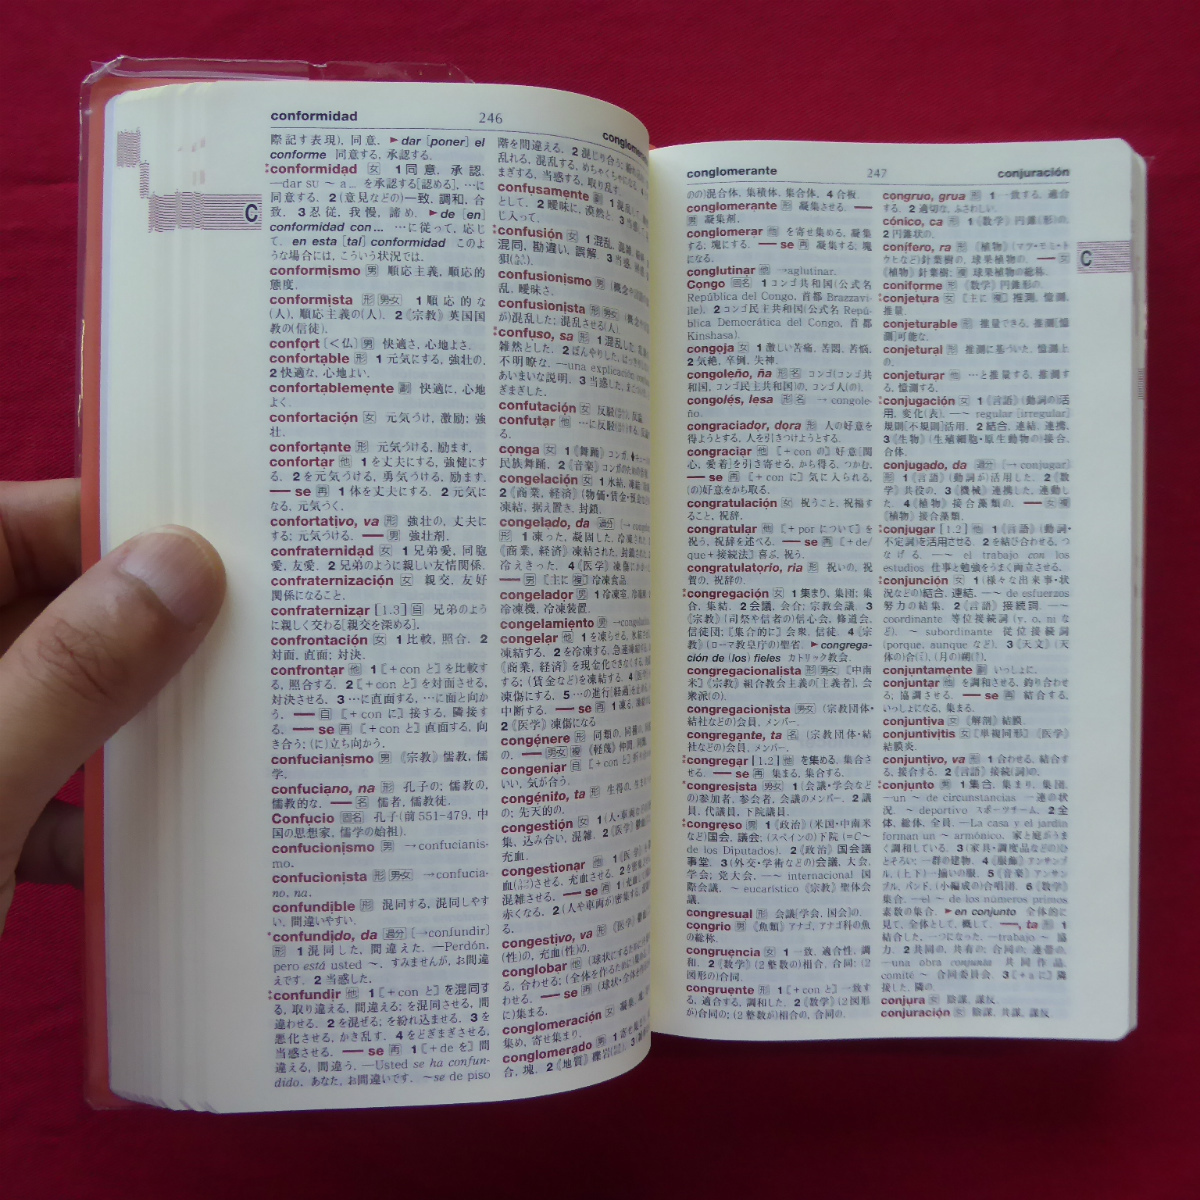 conformidad 246
際記す表現). 同意. ►dar [poner] el
conforme 同意する, 承認する.
conformidad 女 1 同意, 承認.
—dar su ～ a ... を承認する[認める], …に
同意する. 2 (意見などの)一致, 調和, 合
致. 3 忍従, 我慢, 諦め. ►de [en]
conformidad con... …に従って, 応じ
て. en esta [tal] conformidad このよ
うな場合には, こういう状況では.
conformismo 男 順応主義, 順応的
態度.
conformista 形 男女 1 順応的な
(人), 順応主義の(人). 2《宗教》英国国
教の(信徒).
confort [<仏] 男 快適さ, 心地よさ.
confortable 形 1 元気にする, 強壮の.
2 快適な, 心地よい.
confortablemente 副 快適に, 心地
よく.
confortación 女 元気づけ, 激励; 強
壮.
confortante 形 元気づける, 励ます.
confortar 他 1 を丈夫にする, 強健にす
る. 2 を元気づける, 勇気づける, 励ます.
— se 再 1 体を丈夫にする. 2 元気に
なる, 元気づく.
confortativo, va 形 強壮の, 丈夫に
する; 元気づける. — 男 強壮剤.
confraternidad 女 1 兄弟愛, 同胞
愛, 友愛. 2 兄弟のように親しい友情関係.
confraternización 女 親交, 友好
関係になること.
confraternizar [1.3] 自 兄弟のよう
に親しく交わる[親交を深める].
confrontación 女 1 比較, 照合. 2
対面, 直面; 対決.
confrontar 他 1 [+con と]を比較す
る, 照合する. 2 [+con と]を対面させる,
対決させる. 3 …に直面する, …に面と向か
う. — 自 [+con に]接する, 隣接す
る. — se 再 [+con と]直面する, 向
き合う; (に)立ち向かう.
confucianismo 男 《宗教》儒教, 儒
学.
confuciano, na 形 孔子の; 儒教の,
儒教的な. — 名 儒者, 儒教徒.
Confucio 固名 孔子(前551-479, 中
国の思想家, 儒学の始祖).
confucionismo 男 →confucianis-
mo.
confucionista 形 男女 →confucia-
no, na.
confundible 形 混同する, 混同しやす
い, 間違いやすい.
confundido, da 過分 [→confundir]
形 1 混同した, 間違えた. —Perdón,
pero está usted ～. すみませんが, お間違
えです. 2 当惑した.
confundir 他 1 [+con と]を混同す
る, 取り違える, 間違える; を混同させる, 間
違わせる. 2 を混ぜる; を紛れ込ませる. 3 を
悪化させる, かき乱す. 4 をどぎまぎさせる,
当惑させる. — se 再 1 [+de を]間
違える, 間違う. —Usted se ha confun-
dido. あなた, お間違いです. ～se de piso
階を間違える. 2 混じり合う;
乱れる, 混乱する, めちゃくちゃになる.
まぎする, 当惑する, 取り乱す.
confusamente 副
として. 2 曖昧に, 漠然と.
じ入って.
confusión 女 1 混乱, 混雑,
混同, 勘違い, 誤解. 3 当惑,
confusionismo 男 (概念や
乱, 曖昧さ.
confusionista 形 男女 (概念や
が)混乱した; 混乱させる(人).
confuso, sa 形 1 混乱した,
雑然とした. 2 ぼんやりした,
不明瞭な. —una explicación confusa
あいまいな説明. 3 当惑した,
ぎまぎした.
confutación 女 反駁
confutar 他 …に反駁
る.
conga 女 1《舞踊》コンガ
民族舞踊. 2《音楽》コンガ
congelación 女 1 氷結, 凍結
2《商業, 経済》(物価・賃金・
凍結, 据え置き, 封鎖.
congelado, da 過分
形 1 凍った, 凝固した, 冷凍された.
《商業, 経済》凍結された, 封鎖
冷えきった. 4《医学》凍傷にかかった
— 男 [主に複]冷凍食品.
congelador 男 1 冷凍室,
冷凍機, 冷凍装置.
congelamiento 男 →congelación.
congelar 他 1 を凍らせる,
凍結する. 2 を冷凍する,
《商業, 経済》を現金化できなく
する; (賃金など)を凍結する. 4
凍傷にする. 5 …の進行[経過]
中断する. — se 再 1 凍る,
2《医学》凍傷になる.
congénere 形 同類の, 同種の,
の. — 男女 複 《軽蔑》仲間, 同類.
congeniar 自 [+con と]
いい, 気が合う.
congénito, ta 形 生得の, 生まれつき
の; 先天的の.
congestión 女 1 (人・車両などの)
集, 込み合い, 混雑. 2《医学》鬱血,
充血.
congestionar 他 1《医学》を
血させる, 充血させる. 2
混雑させる. — se 再 1
赤くなる. 2 (人や車両が)密集する,
congestivo, va 形 《医学》
(性)の, 充血(性)の.
conglobar 他 (球状にするために)
る, 合わせる; (全体を作るために)
わせる. — se 再 (球状・全体を
に)集まる.
conglomeración 女 凝集,
集め, 寄せ集まり.
conglomerado 男 1 寄せ集め
合, 塊. 2《地質》礫岩
conglomerante 247 conjuración
のの)混合体, 集積体, 集合体. 4 合板.
conglomerante 形 凝集させる. —
男 凝集剤.
conglomerar 他 を寄せ集める, 凝集
する, 塊にする. — se 再 凝集する; 塊
になる.
conglutinar 他 →aglutinar.
Congo 固名 1 コンゴ共和国(公式名
República del Congo, 首都 Brazzavi-
lle). 2 コンゴ民主共和国(公式名 Repú-
blica Democrática del Congo, 首都
Kinshasa).
congoja 女 1 激しい苦痛, 苦悶, 苦悩.
2 気絶, 卒倒, 失神.
congoleño, ña 形 名 コンゴ(コンゴ共
和国, コンゴ民主共和国)の, コンゴ人(の).
congolés, lesa 形 名 → congole-
ño.
congraciador, dora 形 人の好意を
得ようとする, 人を引きつけようとする.
congraciar 他 [+con の](好意, 関
心, 愛着)を引き寄せる, かち得る, つかむ.
— se 再 [+con に]気に入られる,
(の)好意をかち取る.
congratulación 女 祝うこと, 祝福す
ること, 祝辞.
congratular 他 [+por について]を
祝う, 祝辞を述べる. — se 再 [+de/
que+接続法]喜ぶ, 祝う.
congratulatorio, ria 形 祝いの, 祝
賀の, 祝辞の.
congregación 女 1 集まり, 集団; 集
合, 集結. 2 会議, 会合; 宗教会議. 3
《宗教》(司祭や信者の)信心会, 修道会,
信徒団; [集合的に]会衆, 信徒. 4《宗
教》(ローマ教皇庁の)聖省. ►congrega-
ción de (los) fieles カトリック教会.
congregacionalista 形 男女 [中南
米]《宗教》組合教会主義の[主義者], 会
衆派(の).
congregacionista 男女 (宗教団体・
結社などの)会員, メンバー.
congregante, ta 名 (宗教団体・結
社などの)会員, メンバー.
congregar [1.2] 他 を集める, 集合さ
せる. — se 再 集まる, 集合する.
congresista 男女 1 (会議・学会など
の)参加者, 参会者, 会議のメンバー. 2 議
員, 代議員, 下院議員.
congreso 男 1《政治》(米国・中南米
など)国会, 議会; (スペインの)下院(=C～
de los Diputados). 2《政治》国会議
事堂. 3 (外交・学術などの)会議, 大会,
学会; 党大会. —～ internacional 国
際会議. ～ eucarístico《宗教》聖体会
議.
congresual 形 会議[学会, 国会]の.
congrio 男 《魚類》アナゴ, アナゴ科の魚
の総称.
congruencia 女 1 一致, 適合性, 調
和. 2《数学》(2整数の)相合, 合同; (2
図形の)合同.
congruente 形 1 [+con と]一致す
る, 適合する, 調和した. 2《数学》(2図形
が)合同の; (2整数が)相合の, 合同の.
congruo, grua 形 1 一致する, 適合
する. 2 適切な, ふさわしい.
cónico, ca 形 1《数学》円錐(形)の.
2 円錐状の.
conífero, ra 形 《植物》(マツ・モミ・イト
スギなど)針葉樹の, 球果植物の. — 女
《植物》針葉樹; 複 球果植物の総称.
coniforme 形 《数学》円錐形の.
conjetura 女 [主に複]推測, 憶測,
推量.
conjeturable 形 推量できる, 推測[憶
測]可能な.
conjetural 形 推測に基づいた, 憶測上
の.
conjeturar 他 …と推量する, 推測す
る, 憶測する.
conjugación 女 1《言語》(動詞の)活
用, 変化(表). —～ regular [irregular]
規則[不規則]活用. 2 結合, 連結, 連携.
3《生物》(生殖細胞・原生動物の)接合,
合体.
conjugado, da 過分 [→conjugar]
形 1《言語》(動詞が)活用した. 2《数
学》共役の. 3《機械》連携した, 連動し
た. 4《植物》接合藻類の. — 女 複
《植物》接合藻類.
conjugar [1.2] 他 1《言語》(動詞・
不定詞を)活用させる. 2 を結び合わせる, つ
なげる. —～ el trabajo con los
estudios 仕事と勉強をうまく両立させる.
conjunción 女 1 (様々な出来事・状
況などの)結合, 連結. —～ de esfuerzos
努力の結集. 2《言語》接続詞. —～
coordinante 等位接続詞(y, o, ni な
ど). ～ subordinante 従位接続詞
(porque, aunque など). 3《天文》(天
体の)合, (月の)朔
conjuntamente 副 いっしょに.
conjuntar 他 を調和させる, 釣り合わせ
る, 協調させる. — se 再 結合する,
いっしょになる, 集まる.
conjuntiva 女 《解剖》結膜.
conjuntivitis 女 [単複同形]《医学》
結膜炎.
conjuntivo, va 形 1 合わせる, 結合す
る, 接合する. 2《言語》接続(詞)の.
conjunto 男 1 集合, 集まり, 集団.
—un ～ de circunstancias 一連の状
況. ～ deportivo スポーツチーム. 2 全
体, 総体, 全員. —La casa y el jardín
forman un ～ armónico. 家と庭がうま
く調和している. 3 (家具・調度品などの)ひ
とそろい; 一群の建物. 4《服飾》アンサンブ
ル, (上下)一揃いの服. 5《音楽》アンサン
ブル, バンド, (小編成の)合唱団. 6《数学》
集合. —el ～ de los números primos
素数の集合. ►en conjunto 全体的に
見て, 全体として, 概して. —, ta 形 1
結合した, 一つになった. —trabajo ～ 協
力. 2 共同の, 共有の; 合同の; 連帯の.
—una obra conjunta 共同作品.
comité ～ 合同委員会. 3 [+a に]隣
接した, 隣の.
conjura 女 陰謀, 謀反.
conjuración 女 陰謀, 共謀, 謀反.
C
C